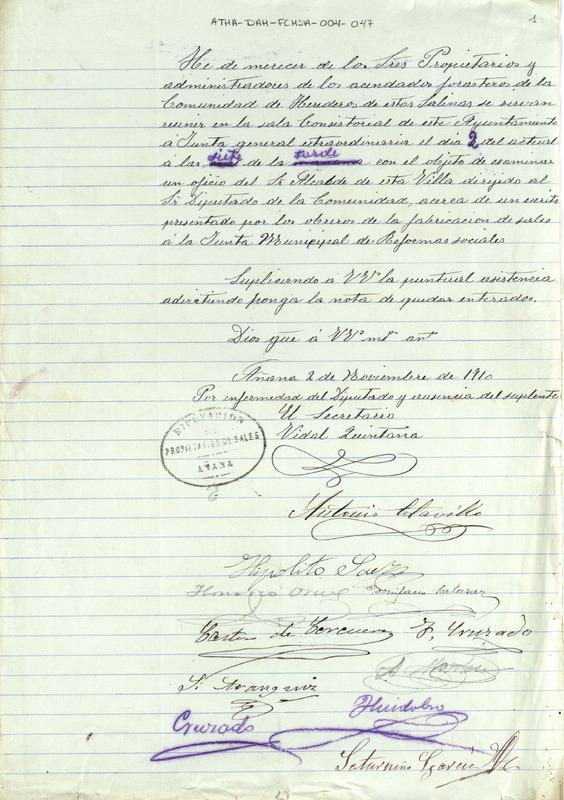 ATHA-DAH-FCHSA-004-047
1
He de merecer de los Sres Propietarios y
administradores de los acendados forasteros de la
Comunidad de Herederos de estas Salinas se sirvan
reunir en la sala Consistorial de este Ayuntamiento
á Junta general extraordinaria el dia 2 del actual
á las siete de la tarde mañana con el objeto de examinar
un oficio del Sr Alcalde de esta Villa dirijido al
Sr Diputado de la Comunidad, acerca de un escrito
presentado por los obreros de la fabricacion de sales
á la Junta Municipal de Reformas sociales
Suplicando á VV la puntual asistencia
advirtiendo ponga la nota de quedar enterados.
Dios gue á VV ms ans
Añana 2 de Noviembre de 1910
Por enfermedad del Diputado y ausencia del suplente
El Secretario
Vidal Quintana
DIPUTACION
DE
PROPIETARIOS DE SALES
AÑANA
Antonio Clavillo
Hipolito Saez
Honorio Bonifacio Salazar
Castor de Corcuera F. Cruzado
S. Aranguiz
Cruzado Huidobro
Saturnino Garcia